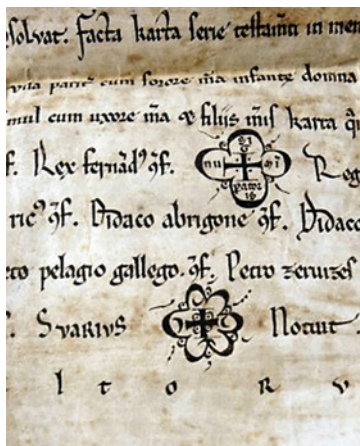 solvat. facta karta serie testamti in men
vita parit cum sorore ma infante domna
mul cum uxore ma & filijs mis karta
f. Rex fernad9 9f. Reg
ric9 9f. Didaco abrigone 9f. Didaco
pelagio gallego. 9f. Petro zeruizes
SVARIVS Notuit
l t o R V